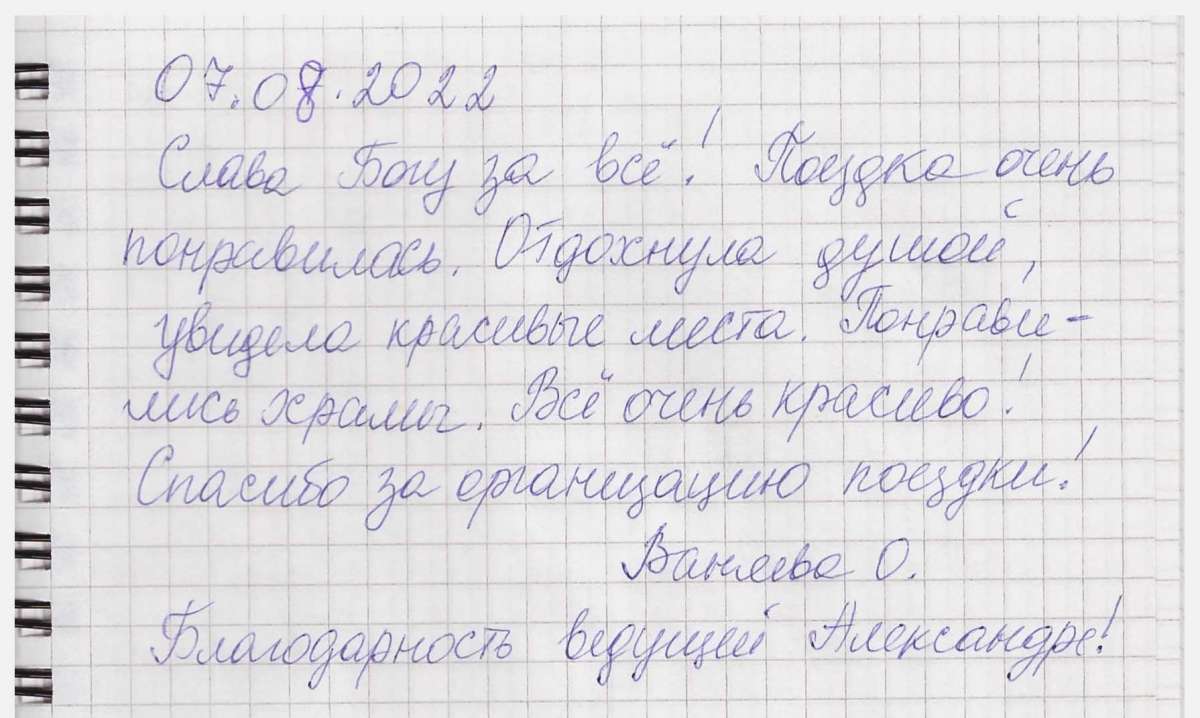 07.08.2022
Слава Богу за всё! Поездка очень
понравилась. Отдохнула душой,
увидела красивые места. Понрави-
лись храмы. Всё очень красиво!
Спасибо за организацию поездки!
Ваняева О.
Благодарность ведущей Александре!